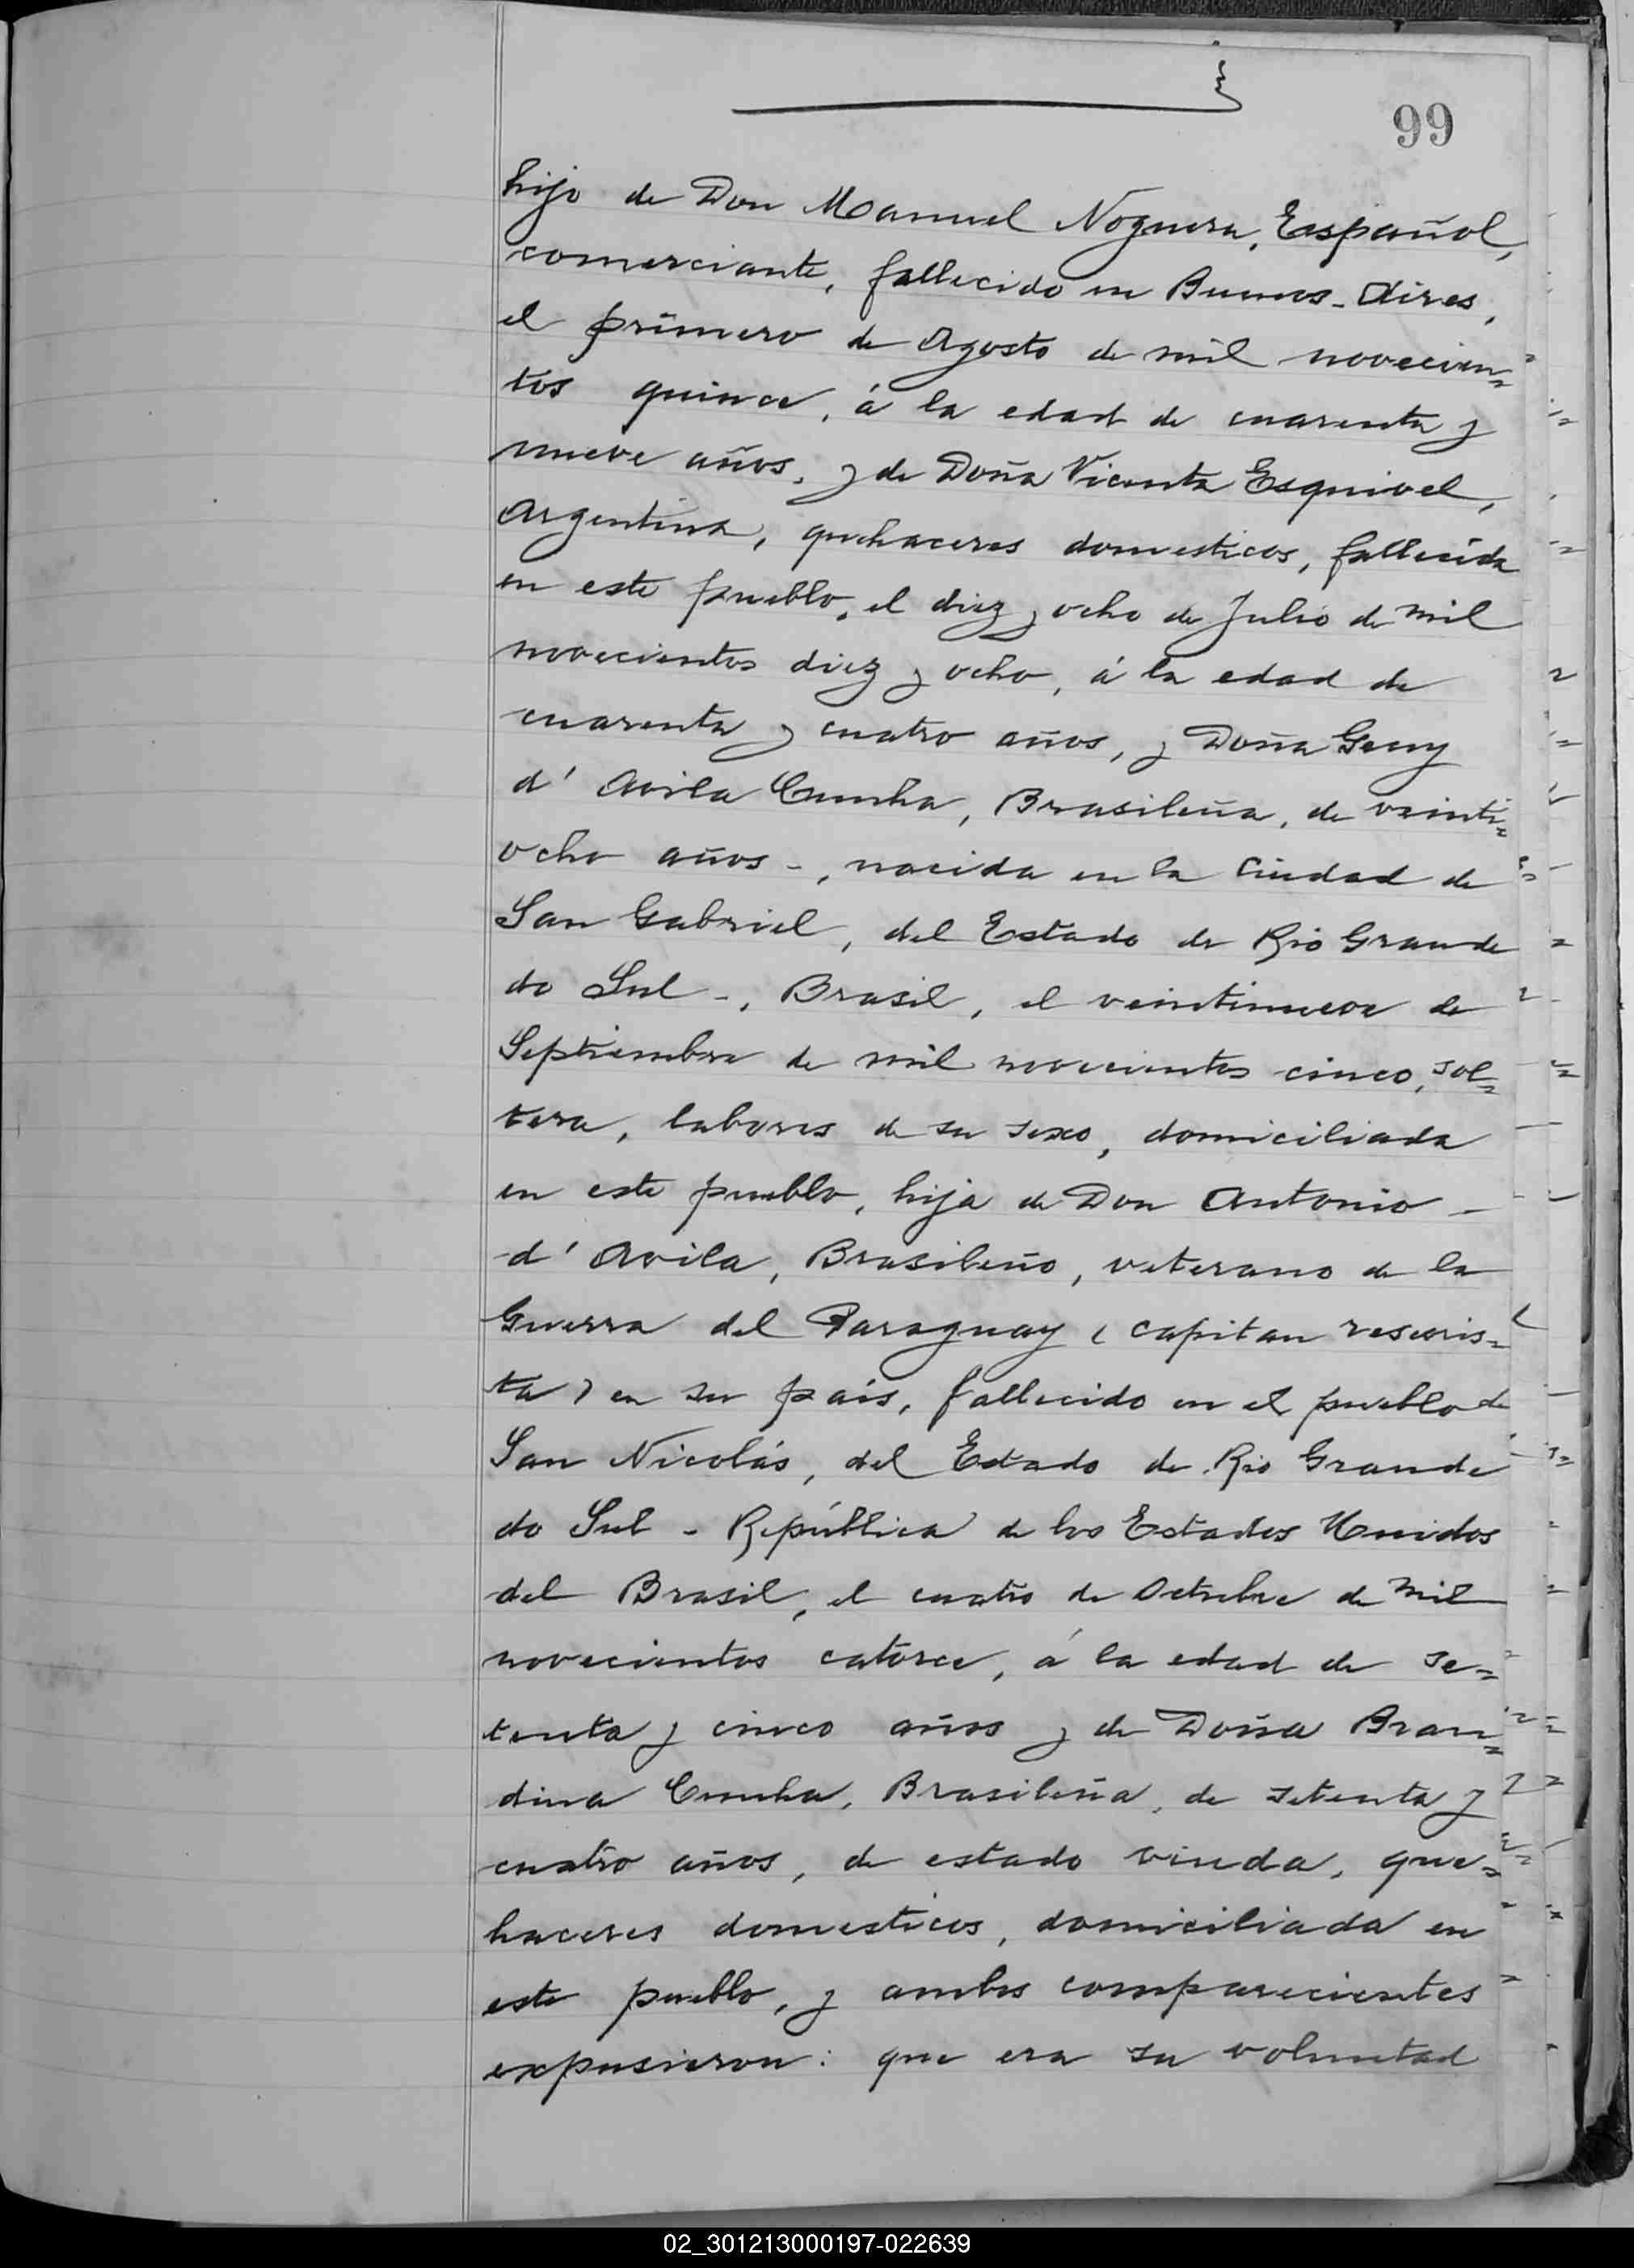 99
hijo de Don Manuel Noguera, Español,
comerciante, fallecido en Buenos-Aires,
el primero de Agosto de mil novecien=
tos quince, á la edad de cuarenta y
nueve años, y de Doña Vicenta Esquivel,
Argentina, quehaceres domesticos, fallecida
en este pueblo, el diez y ocho de Julio de mil
novecientos diez y ocho, á la edad de
cuarenta y cuatro años, y Doña Geny
d' Avila Cunha, Brasileña, de veinti=
ocho años -, nacida en la Ciudad de
San Gabriel, del Estado de Rio Grande
do Sul -, Brasil, el veintinueve de
Septiembre de mil novecientos cinco, sol=
tera, labores de su sexo, domiciliada
en este pueblo, hija de Don Antonio -
d' Avila, Brasileño, veterano de la
Guerra del Paraguay (capitan reservis=
ta) en su país, fallecido en el pueblo de
San Nicolás, del Estado de Rio Grande
do Sul - República de los Estados Unidos
del Brasil, el cuatro de Octubre de mil
novecientos catorce, á la edad de se=
tenta y cinco años y de Doña Bran=
dina Cunha, Brasileña, de setenta y
cuatro años, de estado viuda, que=
haceres domesticos, domiciliada en
este pueblo, y ambos comparecientes
expusieron: que era su voluntad
02_301213000197-022639